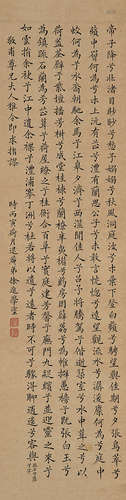 帝子降兮北渚目眇眇兮愁予嫋嫋兮秋風洞庭波兮木葉下登白薠兮騁望與佳期兮夕張鳥萃兮
蘋中罾何為兮木上沅有茝兮醴有蘭思公子兮未敢言荒忽兮遠望觀流水兮潺湲麋何食兮庭中
蛟何為兮水裔朝馳余馬兮江皋夕濟兮西澨聞佳人兮召予將騰駕兮偕逝築室兮水中葺之兮以
荷蓋蓀壁兮紫壇播芳椒兮成堂桂棟兮蘭橑辛夷楣兮藥房罔薜荔兮為帷擗蕙櫋兮既張白玉兮
為鎮疏石蘭兮為芳芷葺兮荷屋繚之兮杜衡合百草兮實庭建芳馨兮廡門九嶷繽兮並迎靈之來兮
如雲捐余袂兮江中遺余褋兮澧浦搴汀洲兮杜若將以遺兮遠者時不可兮驟得聊逍遙兮容與
敬甫尊兄大人雅令即希指謬
時丙寅菊月 弟徐